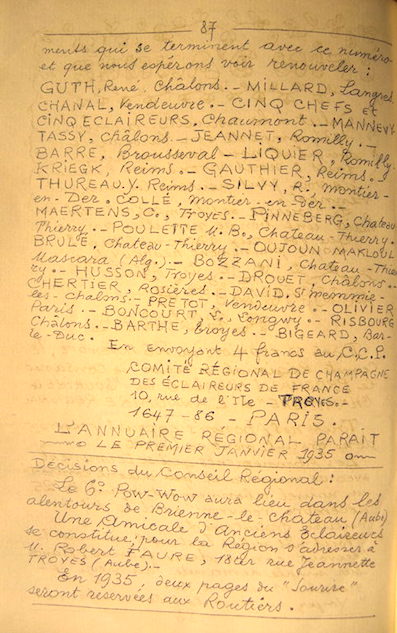 87
ments qui se terminent avec ce numéro
et que nous espérons voir renouveler :
GUTH, René, Châlons._ MILLARD, Langres
CHANAL, Vendeuvre._ CINQ CHEFS et
CINQ ECLAIREURS, Chaumont._ MANNEVY
TASSY, Châlons._ JEANNET, Romilly._
BARRE, Brousseval_ LIQUIER, Romilly.
KRIEGK, Reims._ GAUTHIER, Reims.
THUREAU.Y. Reims._ SILVY, R. Montier-
en-Der. COLLÉ, Montier-en-Der._
MAERTENS, C., TROYES._ PINNEBERG, Chateau
Thierry._ POULETTE M.B., Chateau-Thierry.
BRULÉ, Chateau-Thierry._ OUJOUN MAKLOUL
Mascara (Alg.)._ BOZZANI, Chateau-Thier
ry._ HUSSON, Troyes._ DROUET, Châlons._
CHERTIER, Rosières._ DAVID, St memmie-
les-Chalons._ PRETOT, Vendeuvre._ OLIVIER
Paris._ BONCOURT, Longwy._ RISBOURG
Châlons._ BARTHE, Troyes._ BIGEARD, Bar-
le-Duc.
En envoyant 4 francs au C.C.P.
COMITÉ RÉGIONAL DE CHAMPAGNE
DES ÉCLAIREURS DE FRANCE
10, rue de l'Ile - TROYES._
1647-86_ PARIS.
L'ANNUAIRE RÉGIONAL PARAIT
LE PREMIER JANVIER 1935
Décisions du Conseil Régional :
Le 6° Pow-Wow aura lieu dans les
alentours de Brienne-le-Chateau (Aube)
Une Amicale d'Anciens Eclaireurs
se constitue; pour la Région s'adresser à
M. Robert FAURE, 18ter rue Jeannette
TROYES (Aube)._
En 1935, deux pages du "Sourire"
seront réservées aux Routiers.